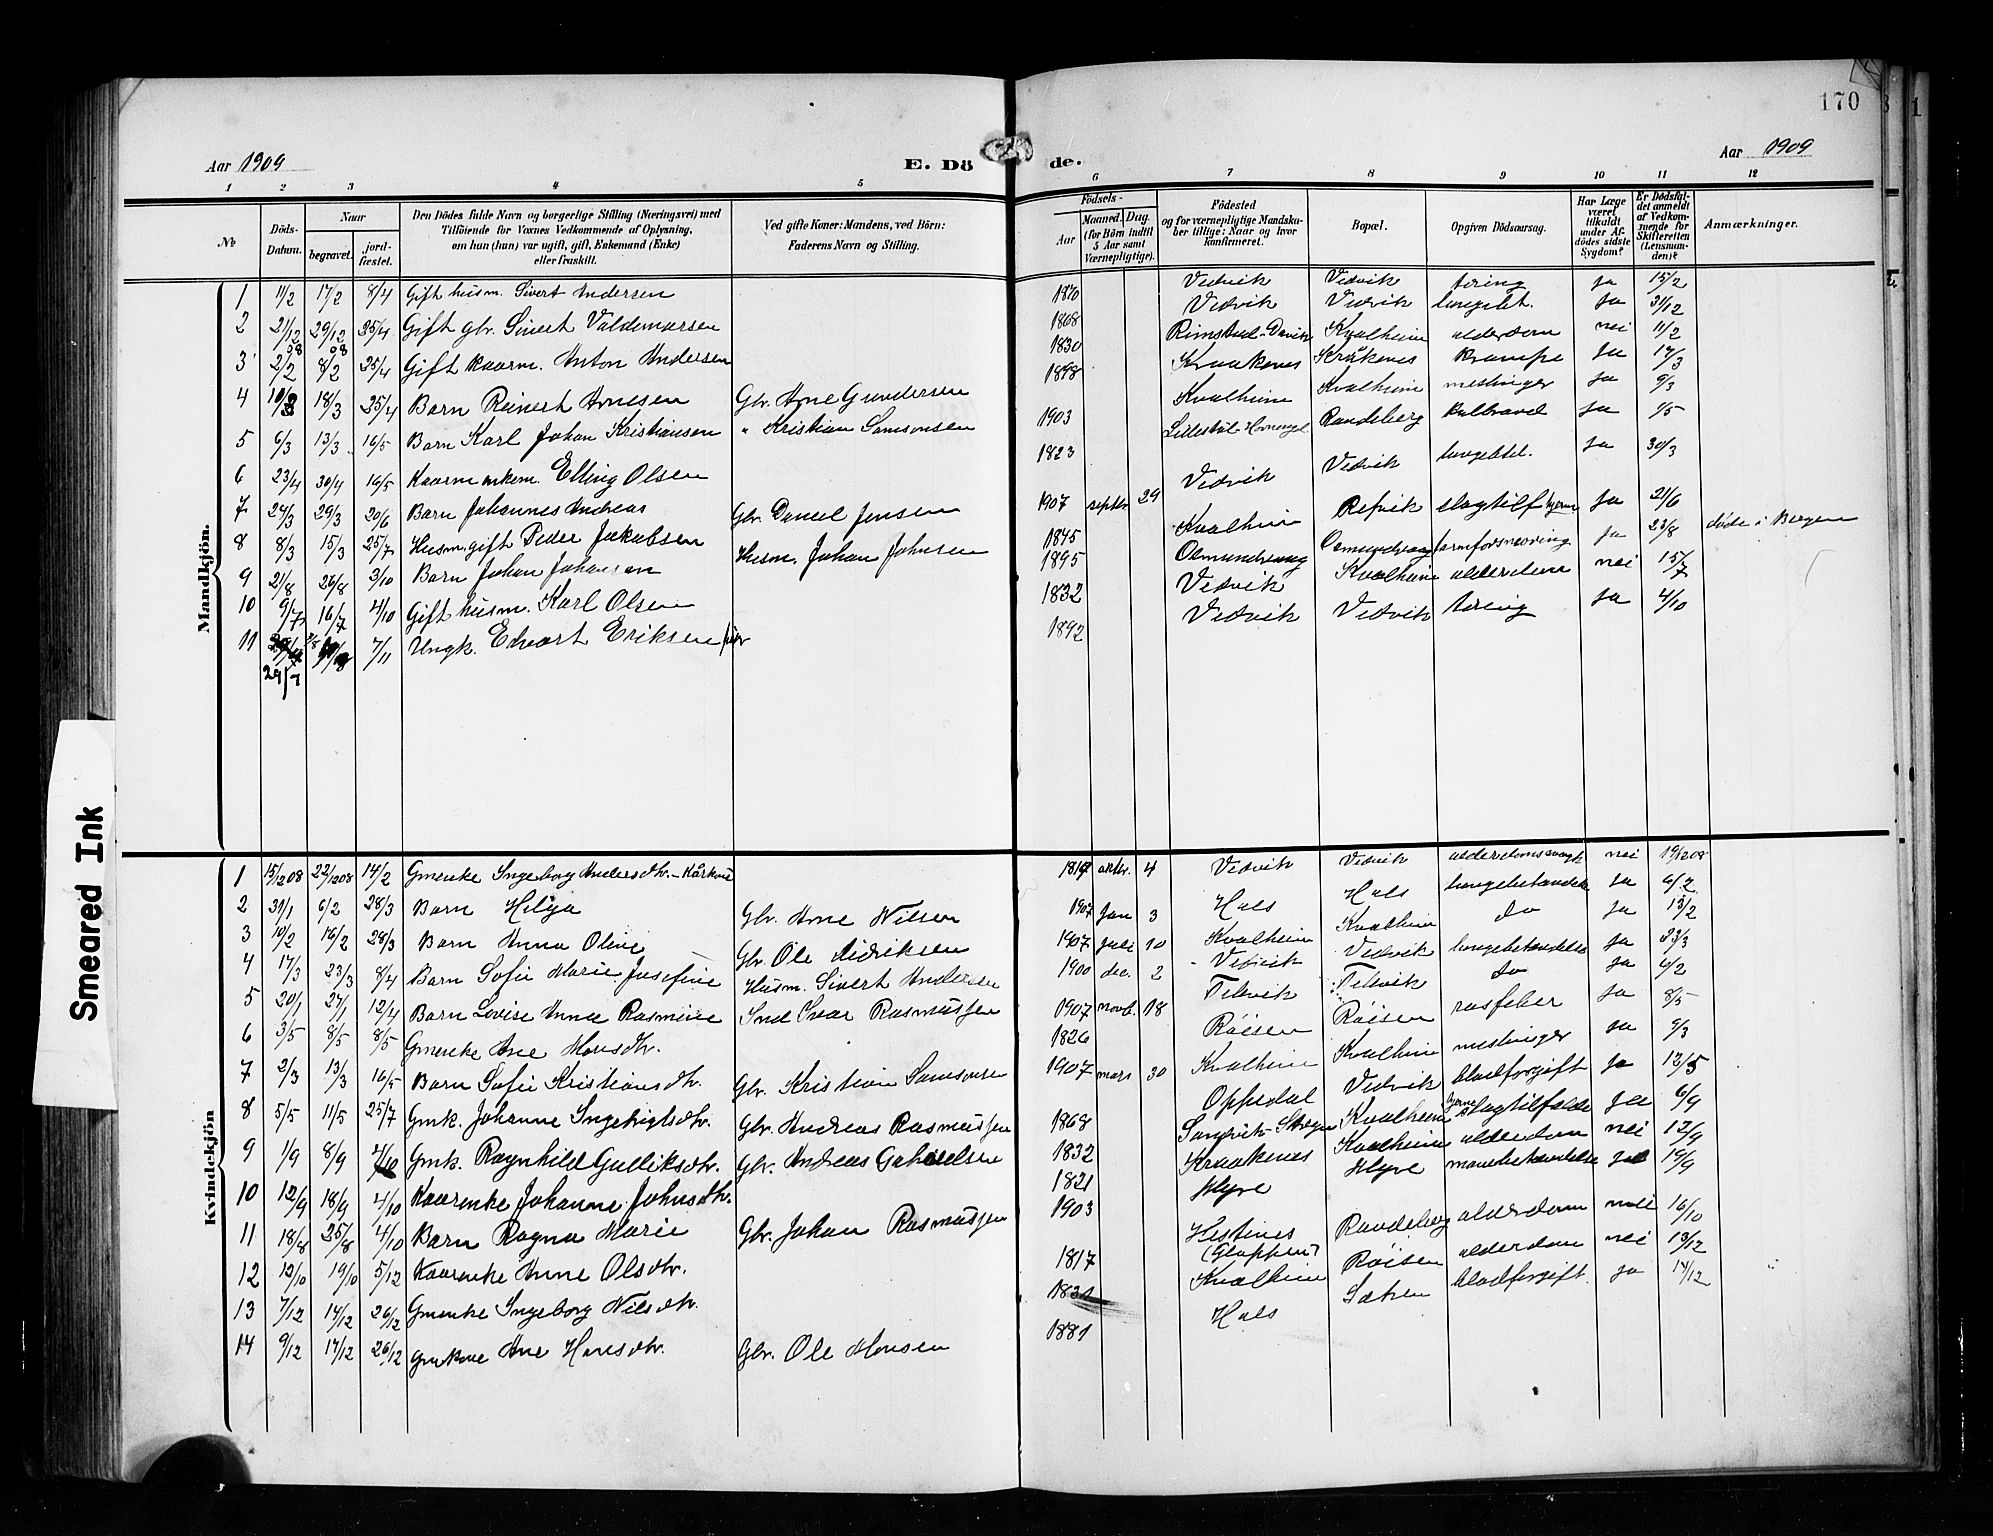 170
Aar 1909
E. Dö
de.
Aar 1909
1 2 3 4 5 6 7 8 9 10 11 12
№
Döds-Datum.
Naar
begravet.
jord-fæstet.
Den Dödes fulde Navn og borgerlige Stilling (Næringsvei) med
Tilföiende for Voxnes Vedkommende af Oplysning,
om han (hun) var ugift, gift, Enkemand (Enke)
eller fraskilt.
Ved gifte Koner: Mandens, ved Börn:
Faderens Navn og Stilling.
Födsels-
Aar
Maaned. Dag.
(for Börn indtil
5 Aar samt
Værnepligtige).
Födested
og for værnepligtige Mandska-
ber tillige: Naar og hvor
konfirmeret.
Bopæl.
Opgiven Dödsaarsag.
Har Læge
været
tilkaldt
under Af-
dödes sidste
Sygdom?
Er Dödsfal-
det anmeldt
af Vedkom-
mende for
Skifteretten
(Lensman-
den)?
Anmærkninger.
Mandkjön.
1 11/2 17/2 8/4 Gift husm. Sivert Andersen 1870 Vedvik Vedvik tæring ja 15/2
2 21/12 08 29/12 08 25/4 Gift gbr. Sivert Valdemarsen 1868 Vedvik Vedvik ja 31/12
3 2/2 8/2 25/4 Gift kaarm. Anton Andersen 1830 Kvalheim alderdom nei 11/2
4 10/3 18/3 25/4 Barn Reinert Arnesen Gbr. Arne Gundersen 1898 Kraakenes Kråkenes krampe ja 17/3
5 6/3 13/3 16/5 Barn Karl Johan Kristiansen " Kristian Samsonsen 1903 Kvalheim Kvalheim meslinger ja 9/3
6 23/4 30/4 16/5 Kaarm enkem. Elling Olsen 1823 Raudeberg kulbrand ja 1/5
7 24/3 29/3 20/6 Barn Johannes Andreas Gbr. Daniel Jensen 1907 septbr 29 Vedvik Vedvik ja 30/3
8 8/3 15/3 25/7 Husm. gift Peder Jakobsen 1845 Kvalheim Refvik slagtilf hjerne ja 21/6
9 21/8 26/8 3/10 Barn Johan Johansen Husm. Johan Johnsen 1895 Osmundsvaag Osmundsvaag ja 23/8 döde i Bergen
10 9/7 16/7 4/10 Gift husm. Karl Olsen 1832 Vedvik Kvalheim alderdom nei 15/7
11 29/7 7/11 Ungk. Edvart Eriksen 1892 Vedvik Vedvik tæring ja 4/10
Kvindekjön
1 15/1208 22/1208 14/2 Gmenke Ingeborg Andersdtr. 1819 oktbr. 4 Vedvik Vedvik nei 19/1208
2 31/1 6/2 28/3 Barn Helga Gbr. Arne Nilsen 1907 Jan 3 Hals Hals lungebetændelse ja 6/2
3 10/2 16/2 28/3 Barn Anna Oline Gbr. Ole Didriksen 1907 juli 10 Kvalheim Kvalheim do ja 13/2
4 17/3 23/3 8/4 Barn Sofie Marie Josefine Husm. Sivert Andersen 1900 dec. 2 Vedvik Vedvik lungebetændelse ja 23/3
5 20/1 27/1 12/4 Barn Lovise Anna Rasmine Ind Ivar Rasmussen 1907 novb. 18 Tekvik Tekvik do ja 6/2
6 3/5 8/5 8/5 Gmenke Ane Monsdtr. 1826 Röisen Röisen rosfeber ja 8/5
7 2/3 13/3 16/5 Barn Sofie Kristiansdtr. Gbr. Kristian Samsonsen 1907 mars 30 Kvalheim Kvalheim meslinger ja 9/3
8 5/5 11/5 25/7 Gmk. Johanne Ingebrigtsdtr. Gbr. Andreas Rasmussen 1868 Oppedal Vedvik blodforgift ja 13/5
9 1/9 8/9 4/10 Gmk. Ragnhild Gulliksdtr. Gbr. Andreas Gabrielsen 1832 Kvalheim hjerne slagtilfælde ja 6/9
10 12/9 18/9 4/10 Kaarenke Johanne Johnsdtr. 1821 Kraakenes Kvalheim alderdom nei 12/9
11 18/8 25/8 4/10 Barn Ragna Marie Gbr. Johan Rasmussen 1903 Hyve Hyve mavebetændelse ja 19/9
12 12/10 19/10 5/12 Kaarenke Anne Olsdtr. 1817 Hestenes (Gloppen) Raudeberg alderdom nei 16/10
13 7/12 14/12 26/12 Gmenke Ingeborg Nilsdtr. 1831 Kvalheim Röisen alderdom nei 13/12
14 9/12 17/12 26/12 Gmkone Ane Hansdtr. Gbr. Ole Monsen 1881 Hals Sætren blodforgift. ja 14/12
Smeared Ink